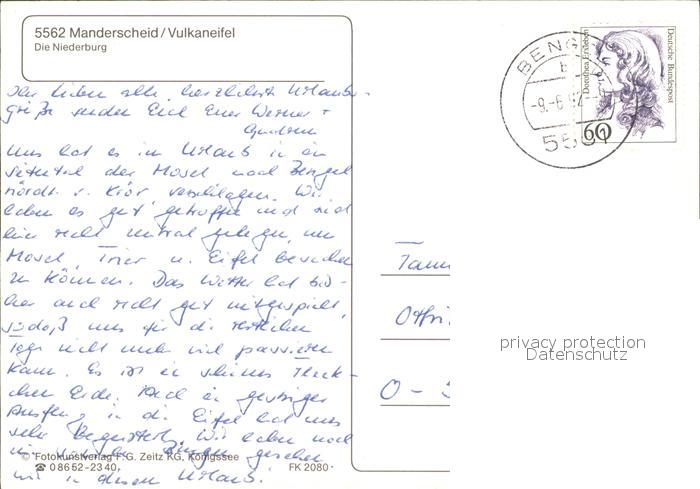 5562 Manderscheid / Vulkaneifel
Die Niederburg
Ihr Lieben alle, herzlichste Urlaubs-
grüße senden Euch Euer Werner +
Gudrun
Uns hat es im Urlaub in ein
Seitental der Mosel nach Bengel
nördl. v. Kröv verschlagen. Wir
haben es gut getroffen und sind
hier recht zentral gelegen, um
Mosel, Trier u. Eifel besuchen
zu können. Das Wetter hat bis-
her auch recht gut mitgespielt,
sodaß uns für die restlichen
Tage nicht mehr viel passieren
kann. Es ist ein schönes Fleck-
chen Erde. Auch ein gestriger
Ausflug in die Eifel hat uns
sehr begeistert. Wir haben noch
nie so viele Burgen gesehen
wie in diesem Urlaub.
© Fotokunstverlag F.G. Zeitz KG, Königssee
☎ 0 86 52 - 23 40
FK 2080
BENGEL
b
-9.-6.92--
5561
60
Dorothea Erxleben
Deutsche Bundespost
O -
privacy protection
Datenschutz